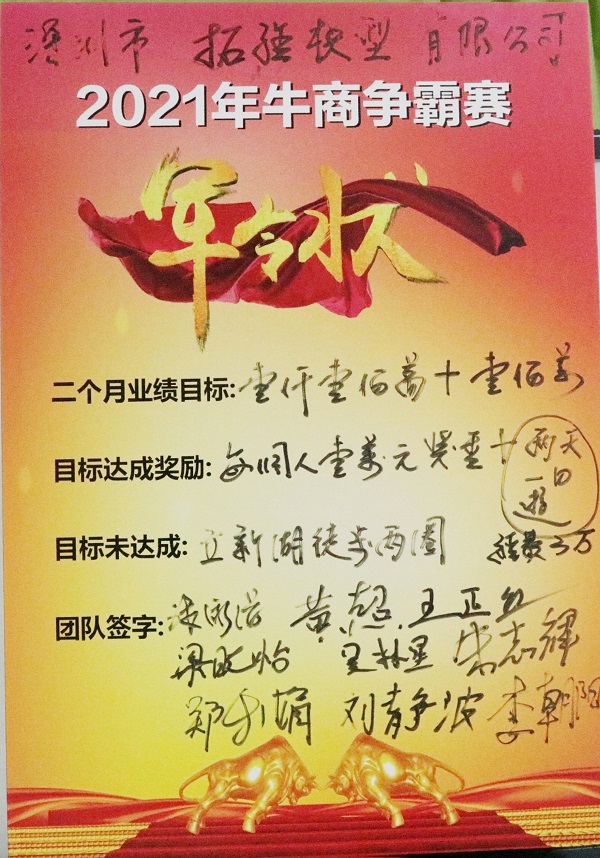 深圳市 拓强模型 有限公司
2021年牛商争霸赛
军令状
二个月业绩目标:壹仟壹佰萬十壹佰萬
目标达成奖励:每個人壹萬元奖金+ 两天
一日
游
目标未达成:立新湖徒步两圈 经费3万
团队签字: 黄超 王正
梁晓怡 志輝
郑利娟 刘静波 李朝阳